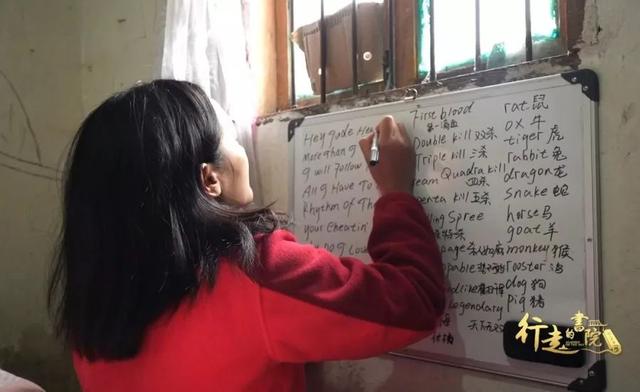 Hey Jude He
More Than I
I will Follow
All I Have To
Rhythm of The
your Cheatin'
First blood
第一滴血
Double kill 双杀
Triple kill 三杀
Quadra kill
四杀
enta kill 五杀
ling Spree
page
pable
dlike
Legendary
rat 鼠
ox 牛
tiger 虎
rabbit 兔
dragon 龙
snake 蛇
horse 马
goat 羊
monkey 猴
rooster
dog 狗
pig 猪
行走的書院